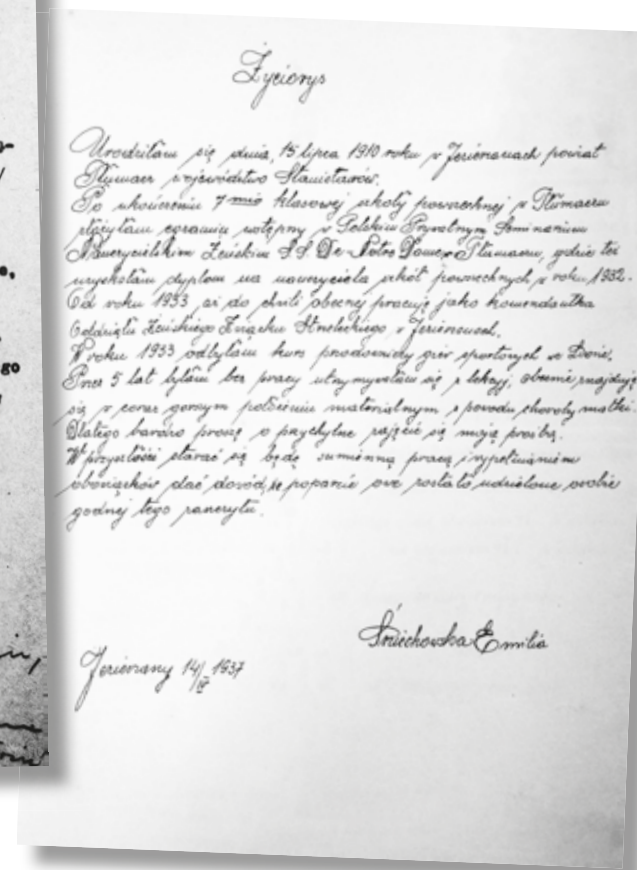 Życiorys
Urodziłam się dnia, 15 lipca 1910 roku w Jezierzanach powiat
Tłumacz województwo Stanisławów.
Po ukończeniu 7 mio klasowej szkoły powszechnej w Tłumaczu
złożyłam egzamin wstępny w Polskim Prywatnym Seminarium
Nauczycielskim Żeńskim S.S. De Notre Dame w Tłumaczu, gdzie też
uzyskałam dyplom na nauczyciela szkół powszechnych w roku, 1932.
Od roku 1933 aż do chwili obecnej pracuję jako komendantka
Oddziału Żeńskiego Związku Strzeleckiego w Jezierzanach.
W roku 1933 odbyłam kurs przodownicy gier sportowych we Lwowie.
Przez 5 lat byłam bez pracy utrzymywałam się z lekcyj, obecnie znajduję
się w coraz gorszym położeniu materialnym z powodu choroby matki.
Dlatego bardzo proszę o przychylne zajęcie się moją prośbą.
W przyszłości starać się będę sumienną pracą i wypełnianiem
obowiązków dać dowód, że poparcie owe zostało udzielone osobie
godnej tego zaszczytu.
Śnieckowska Emilia
Jezierzany 14/IV 1937
go